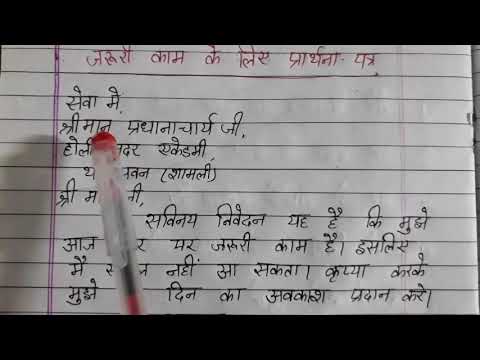 जरूरी काम के लिए प्रार्थना-पत्र
सेवा में,
श्रीमान प्रधानाचार्य जी,
होली एकेडमी,
भवन (शामली)
श्री
सविनय निवेदन यह है कि मुझे
आज पर जरूरी काम है। इसलिए
मैं नहीं आ सकता। कृप्या करके
मुझे दिन का अवकाश प्रदान करे।